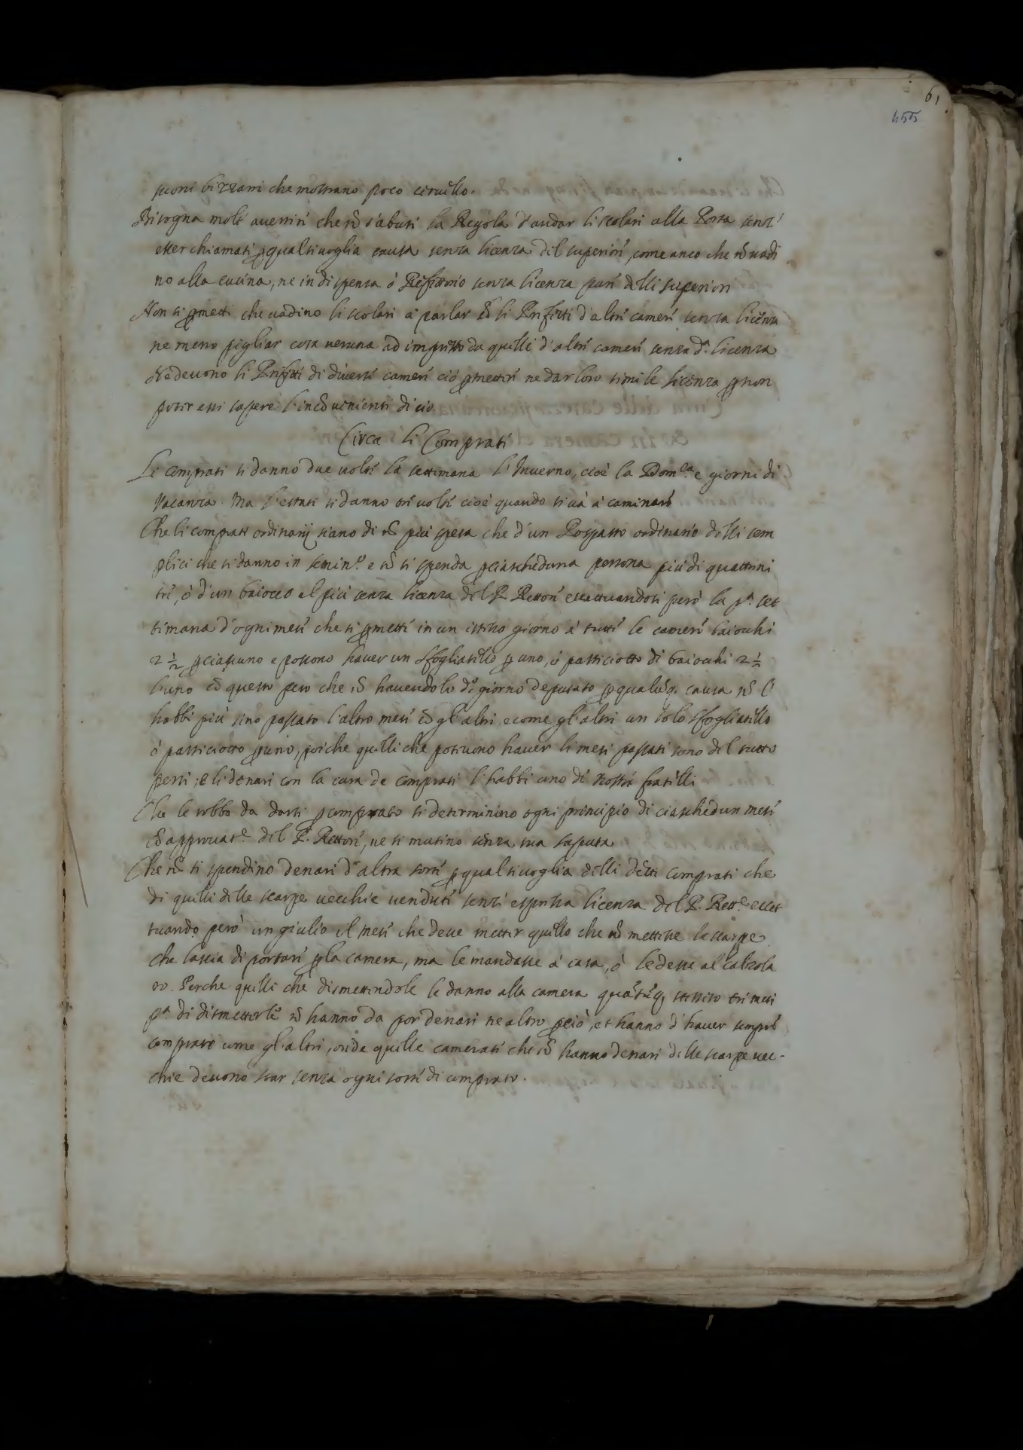 61
455
suoni bizzarri che mostrano poco cervello.
Bisogna molt' avertiri che nõ s'abusi la Regola d'andar li scolari alla Porta senz'
esser chiamati p qualsivoglia causa senza licenza del superiori, come anco che nõ vadi
no alla cucina, ne in dispensa ò Refettorio senza licenza pari delli superiori
Non si pmetti che vadino li scolari à parlar cõ li Prefetti d'altri cameri senza licenza
ne meno pigliar cosa veruna ad imprestito da quelli d'altri cameri senza dª licenza
Ne devono li Prefetti di diversi cameri ciò pmettiri ne dar loro simile licenza p non
potir essi sapere l'incõvenienti di ciò
Circa li Comprati
Li comprati si danno due volti la settimana l'Inverno, cioè la Domca e giorni di
Vacanza. Ma l'estati si danno tri volti cioè quando si và à caminari
Che li comprati ordinarij siano di nõ più spesa che d'un Pospasto ordinario delli sem
plici che si danno in semino e nõ si spenda p ciascheduna persona più di quattrini
tri, ò d'un baiocco al più senza licenza del P. Rettori eccettuandosi però la pª set
timana d'ogni mesi che si pmetti in un istisso giorno à tutti le cameri baiochi
2 ½ p ciascuno e possono haver un sfogliatillo p uno, ò pasticiotto di baiochi 2 ½
l'uno cõ questo però che nõ havendolo dº giorno deputato p qualũq causa nõ l'
habbi più sino passato l'altro mesi cõ gl'altri e come gl'altri un solo sfogliatillo
ò pasticiotto p uno, poiche quelli che potevono haver li mesi passati sono del tutto
persi; e li denari con la cura de comprati l'habbi uno di nostri fratilli
Che le robbe da darsi p comprato si determinino ogni principio di ciaschedun mesi
cõ approvare del P. Rettori, ne si mutino senza sua saputa
Che nõ si spendino denari d'altra sorti p qualsivoglia delli detti comprati che
di quilli dille scarpe vecchie venduti senz' espressa licenza del P. Rettre eccet
tuando però un giulio il mesi che deve metter quillo che nõ mettesse le scarpe
che lascia di portari p la camera, ma le mandasse à casa, ò le desse al calzola
ro. Perche quilli che dismettindole le danno alla camera
pª di dismetterli nõ hanno da por denari ne altro p ciò, et hanno d'haver sempri
comprato come gl'altri, onde quille camerati che nõ hanno denari dille scarpe vec-
chie devono star senza ogni sorti di comprato.